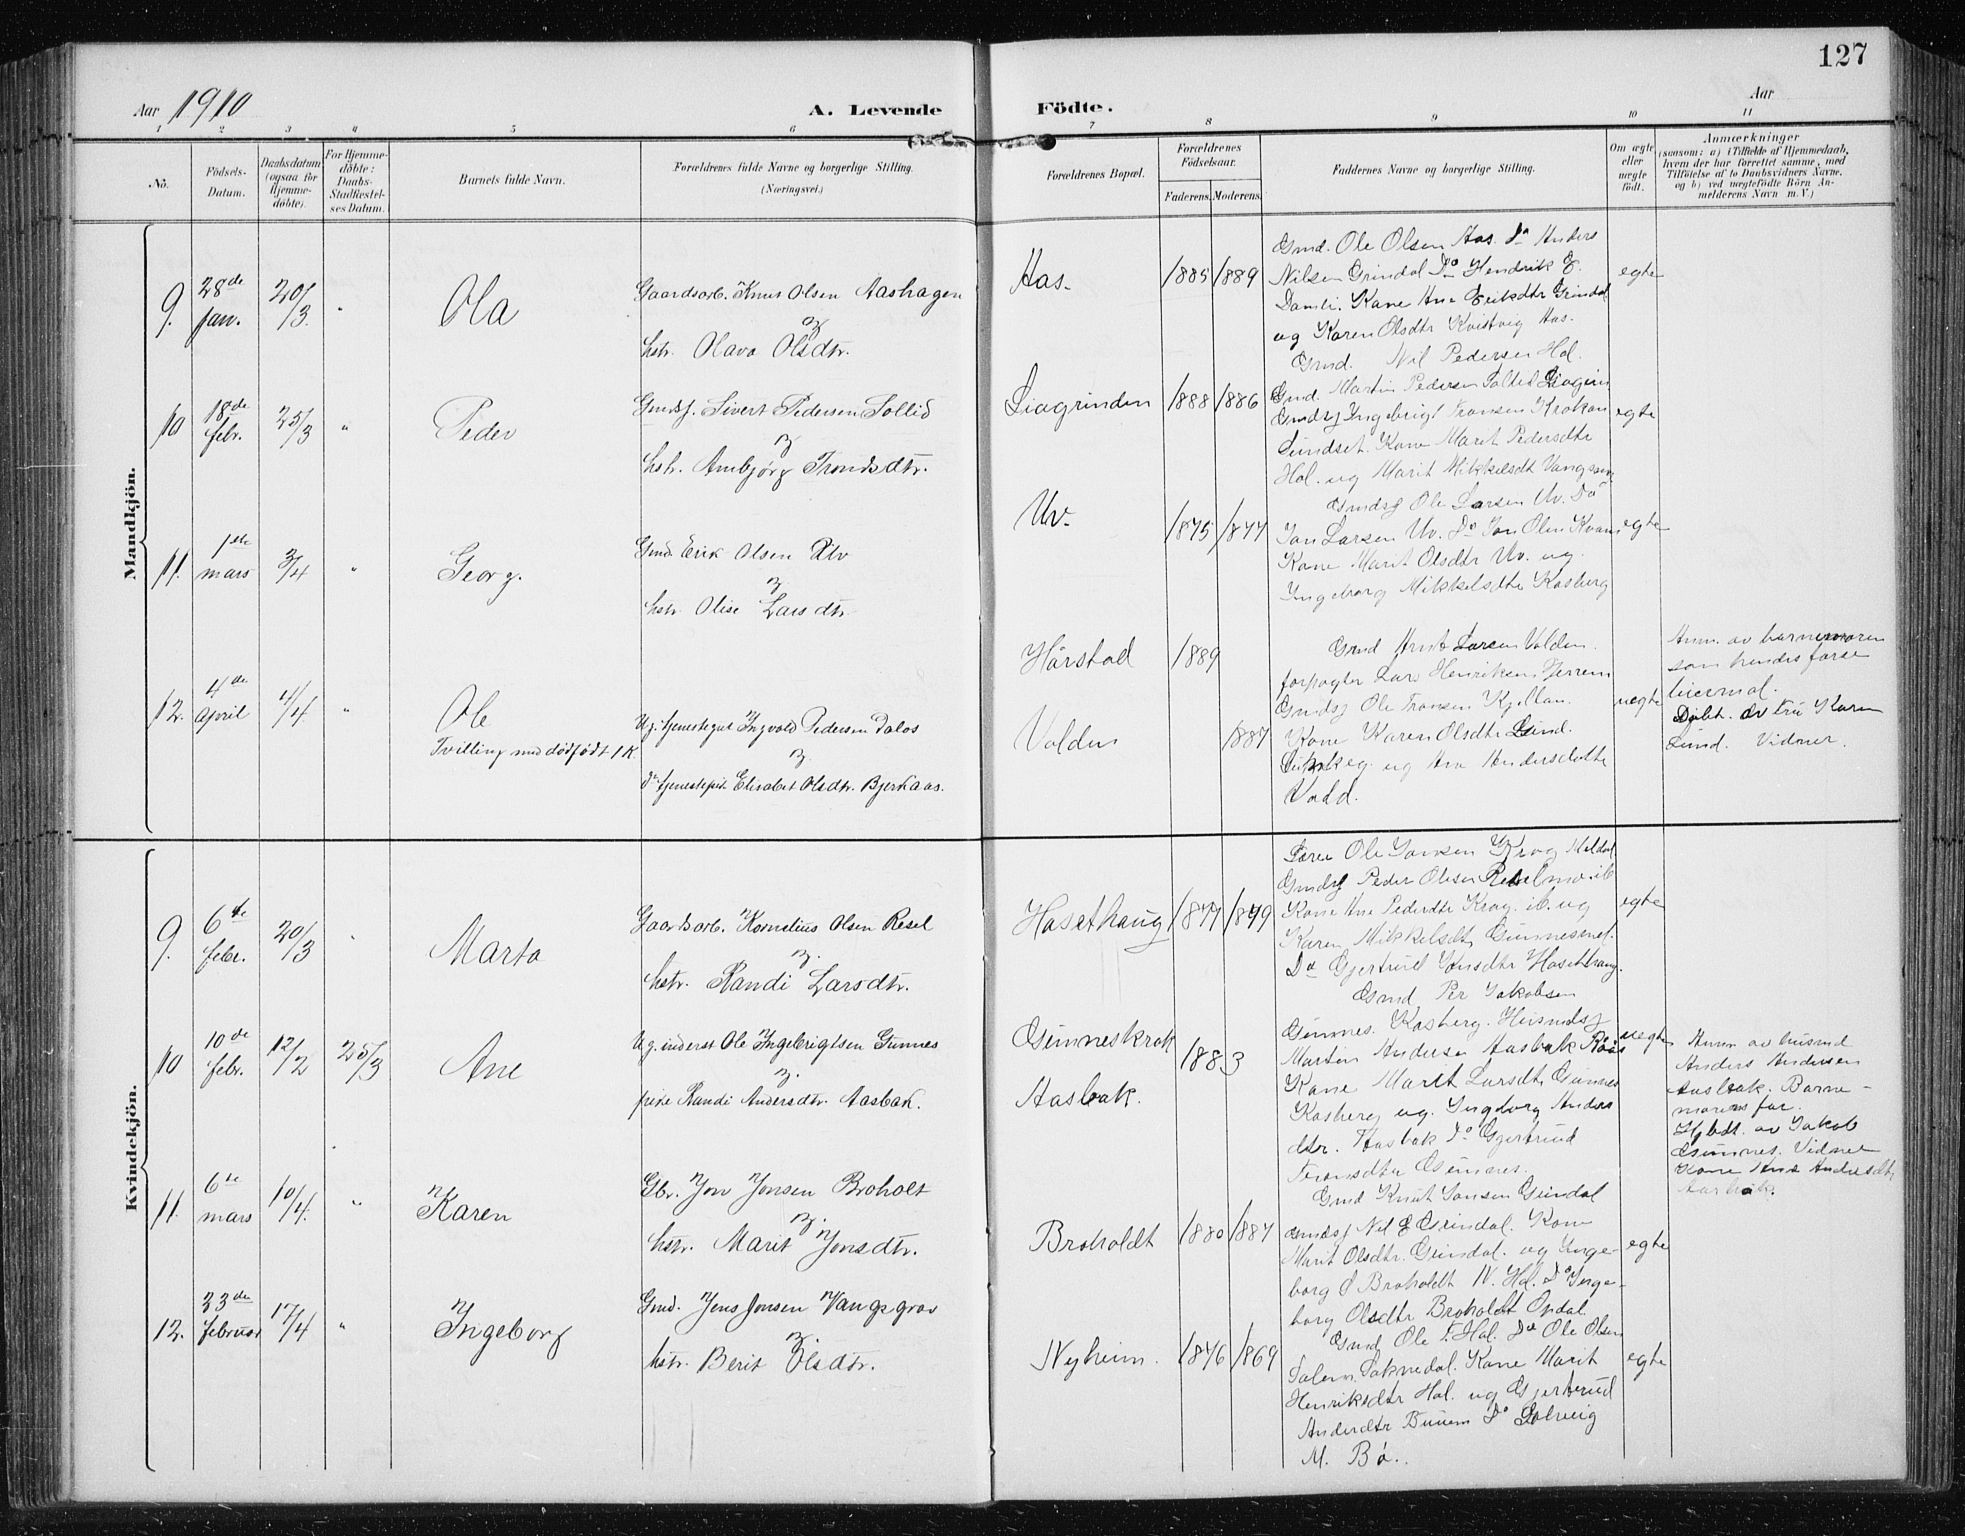 127
Aar 1910
A. Levende Födte.
Aar
1 2 3 4 5 6 7 8 9 10 11
No.
Födsels-
Datum.
Daabsdatum
(ogsaa for
Hjemme-
döbte).
For Hjemme-
döbte:
Daabs-
Stadfæstel-
ses Datum.
Barnets fulde Navn.
Forældrenes fulde Navne og borgerlige Stilling.
(Næringsvei.)
Forældrenes Bopæl.
Forældrenes
Födselsaar.
Faderens. Moderens.
Faddernes Navne og borgerlige Stilling.
Om ægte
eller
uægte
födt.
Anmærkninger
(saasom: a) i Tilfælde af Hjemmedaab,
hvem der har forrettet samme, med
Tilföielse af to Daabsvidners Navne.
og b) ved uægtefödte Börn An-
melderens Navn m. V.)
Mandkjön.
9. 28de jan. 20/3 " Ola
Gaardsarb. Knut Olsen Aashagen
og
hstr. Olava Olsdtr.
Aas. 1885 1889
Gmd. Ole Olsen Aas. Do Anders
Nilsen Grindal Do Hendrik E.
Damli. Kone Ane Eriksdtr Grindal
og Karen Olsdtr Kvistvig Aas.
egte
10 18de febr. 25/3 " Peder
Gmdsf. Sivert Pedersen Sollid
og
hstr. Ambjørg Trondsdtr.
Liagrinden 1888 1886
Gmd. Nil Pedersen Hol.
Gmd. Martin Pedersen
Gmdsf Ingebrigt Tronsen Krokan
Sundset. Kone Marit Pedersdtr
Hol. og Marit Mikkelsdt
egte
11. 1ste mars 3/4 " Georg.
Gmd. Erik Olsen Uv
og
hstr Olise Larsdtr.
Uv. 1875 1877
Gmdsf Ole Larsen Uv. Do
Jon Larsen Uv. Do Jon Olsen
Kone Marit Olsdtr Uv. og
Ingeborg Mikkelsdtr Kosberg
egte
12. 4de April 4/4 " Ole
Tvilling med dödfödt 1 K.
Ug. tjenestegut Ingvald Pedersen Dalos
og
do tjenestepik Elisabet Olsdtr. Bjerkaas.
Hårstad 1889
Volden 1887
Gmd Arnt Larsen Volden.
forpagter Lars Henriksen Jerrem
Gmdsf Ole Tronsen
Kone Karen Olsdtr Lund.
og Ane Andersdotte
uegte
Anm. av barnemoren
som hendes første
leiermal.
Døbt. av fru Karen
Lund. Vidner.
Kvindekjön.
9. 6te febr. 20/3 " Marta
Gaardsarb. Kornelius Olsen Resel
og
hstr. Randi Larsdtr.
Hasethaug 1877 1879
Lærer Ole Jonsen Krog Meldal
Gmdsf Peder Olsen
Kone Ane Pedersdtr Krog. ib. og
Karen Mikkelsdtr
Do Gjertrud Jonsdtr Hasethaug.
egte
10 10de febr. 12/2 25/3 Ane
Ug. inderst Ole Ingebrigtsen Gunnes
og
pike Randi Andersdtr. Aasbak.
Gunneskrok
Aasbak. 1883
Gmd Per Jakobsen
Gunnes. Kosberg. Husmdsf
Martin Andersen Aasbak
Kone Marit Larsdtr Gunnes
Kosberg og. Ingeborg Anders
dtr. Aasbak Do Gjertrud
Tronsdtr Gunnes.
uegte
Anm av husmd
Anders Andersen
Aasbak. Barne-
morens far.
Hjbdt. av Jakob
Gunnes. Vidner
Kone Ane Andersdt,
Aasbak.
11. 6te mars 10/4. " Karen
Gbr. Jon Jonsen Broholt
og
hstr. Marit Jonsdtr.
Broholdt 1880 1887
Gmd Knut Jonsen Grindal
Gmdsf Nil E Grindal. Kone
Marit Olsdtr. Grindal. og Inge-
borg O Broholdt N. Hol. Do Inge-
borg Olsdtr Broholdt Opdal
egte
12. 23de februar 17/4 " Ingeborg
Gmd. Jens Jonsen Vangsgrav
og
hstr. Berit Olsdtr.
Nyheim. 1876 1869
Gmd Ole T. Hol. Do Ole Olsen
Solem. Soknedal. Kone Marit
Henriksdtr Hol. og Gjertrud
Andersdtr Do Solveig
M. Bø.
egte